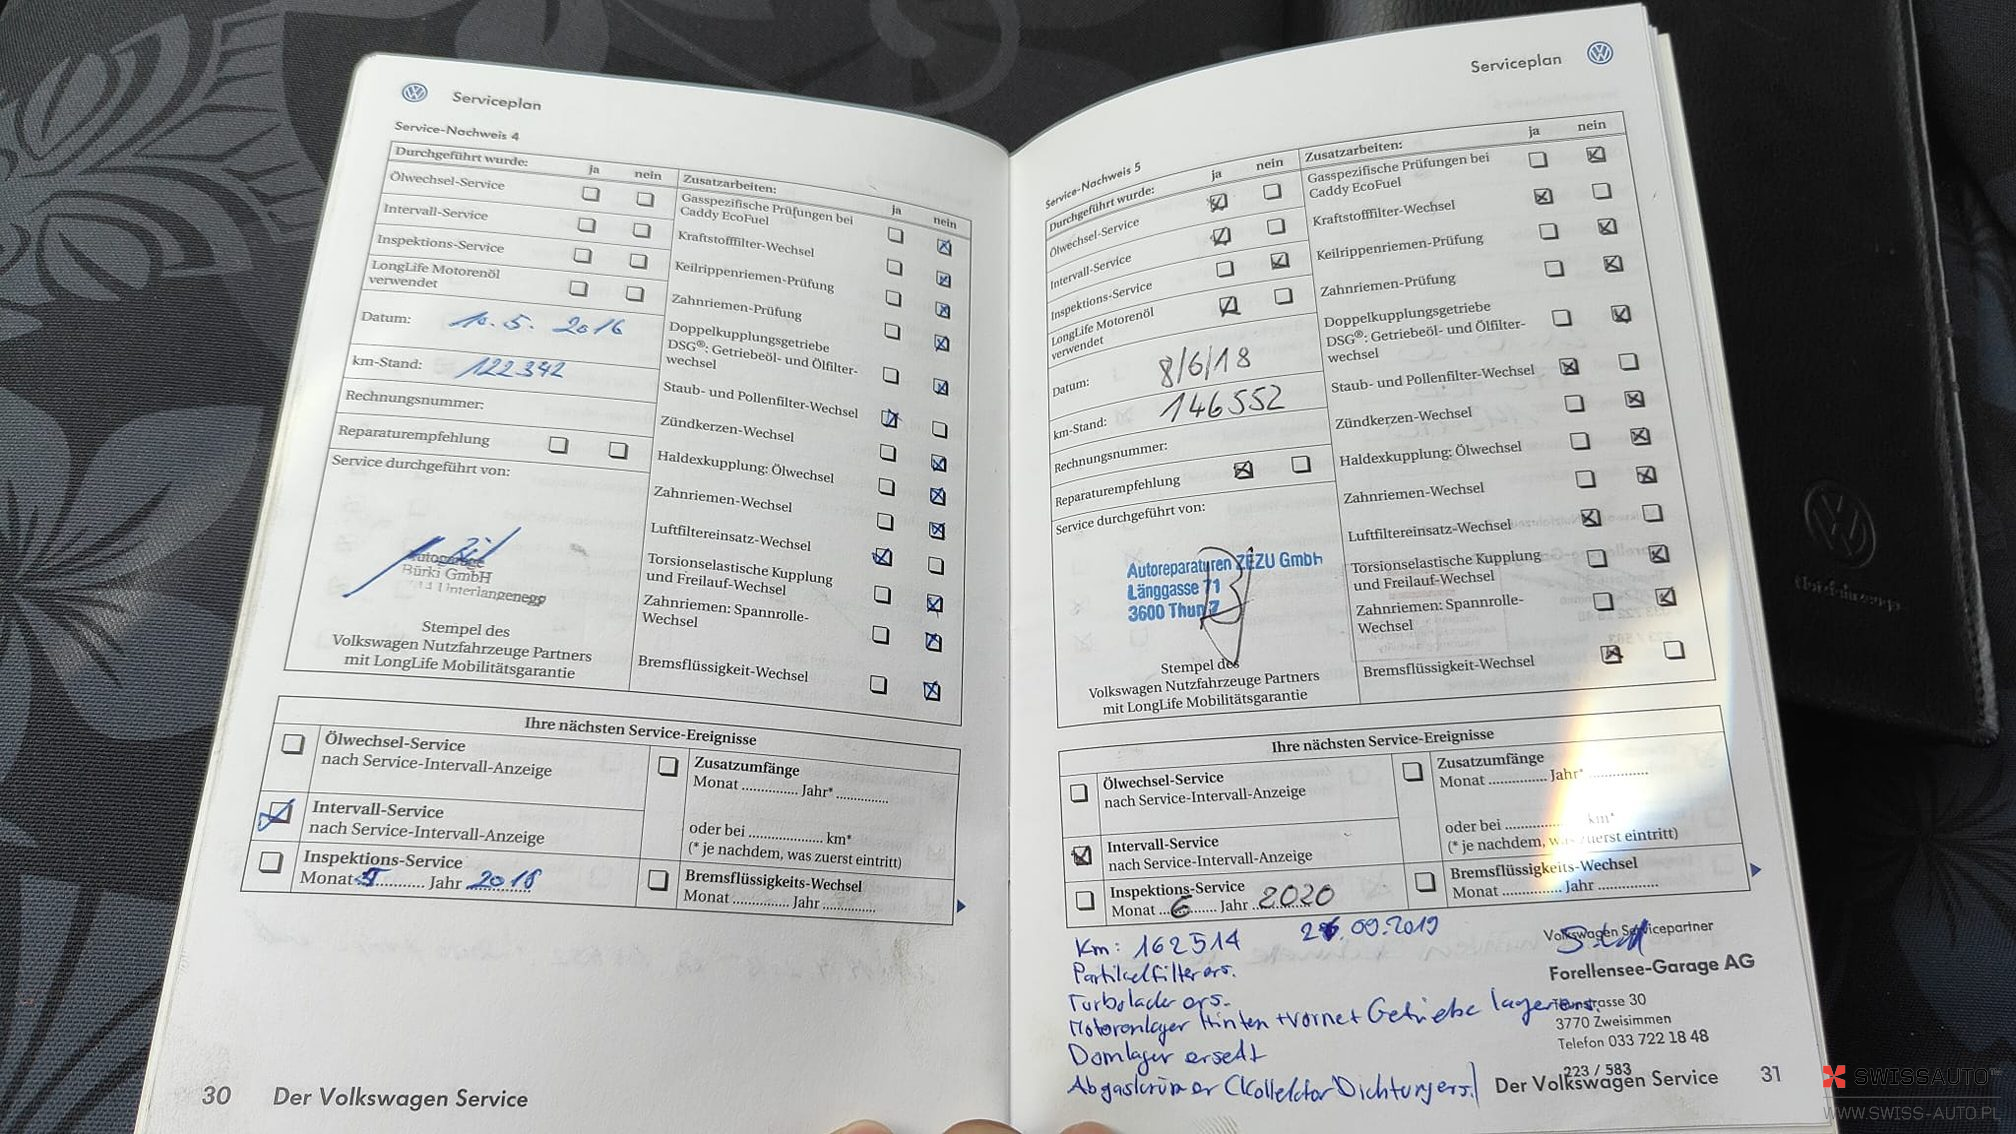 Serviceplan
Service-Nachweis 4
Durchgeführt wurde: ja nein
Ölwechsel-Service
Intervall-Service
Inspektions-Service
LongLife Motorenöl
verwendet
Datum: 10.5. 2016
km-Stand: 122342
Rechnungsnummer:
Reparaturempfehlung
Service durchgeführt von:
Autogarage
Bürki GmbH
Unterlangenegg
Stempel des
Volkswagen Nutzfahrzeuge Partners
mit LongLife Mobilitätsgarantie
Zusatzarbeiten: ja nein
Gasspezifische Prüfungen bei
Caddy EcoFuel
Kraftstofffilter-Wechsel
Keilrippenriemen-Prüfung
Zahnriemen-Prüfung
Doppelkupplungsgetriebe
DSG®: Getriebeöl- und Ölfilter-
wechsel
Staub- und Pollenfilter-Wechsel
Zündkerzen-Wechsel
Haldexkupplung: Ölwechsel
Zahnriemen-Wechsel
Luftfiltereinsatz-Wechsel
Torsionselastische Kupplung
und Freilauf-Wechsel
Zahnriemen: Spannrolle-
Wechsel
Bremsflüssigkeit-Wechsel
Ihre nächsten Service-Ereignisse
Ölwechsel-Service
nach Service-Intervall-Anzeige
Intervall-Service
nach Service-Intervall-Anzeige
Inspektions-Service
Monat ........... Jahr 2018
Zusatzumfänge
Monat ............... Jahr* ..............
oder bei .................... km*
(* je nachdem, was zuerst eintritt)
Bremsflüssigkeits-Wechsel
Monat ............... Jahr ..............
30 Der Volkswagen Service
Serviceplan
Service-Nachweis 5
Durchgeführt wurde: ja nein
Ölwechsel-Service
Intervall-Service
Inspektions-Service
LongLife Motorenöl
verwendet
Datum: 8/6/18
km-Stand: 146552
Rechnungsnummer:
Reparaturempfehlung
Service durchgeführt von:
Autoreparaturen ZEZU Gmbh
Länggasse 71
3600 Thun
Stempel des
Volkswagen Nutzfahrzeuge Partners
mit LongLife Mobilitätsgarantie
Zusatzarbeiten: ja nein
Gasspezifische Prüfungen bei
Caddy EcoFuel
Kraftstofffilter-Wechsel
Keilrippenriemen-Prüfung
Zahnriemen-Prüfung
Doppelkupplungsgetriebe
DSG®: Getriebeöl- und Ölfilter-
wechsel
Staub- und Pollenfilter-Wechsel
Zündkerzen-Wechsel
Haldexkupplung: Ölwechsel
Zahnriemen-Wechsel
Luftfiltereinsatz-Wechsel
Torsionselastische Kupplung
und Freilauf-Wechsel
Zahnriemen: Spannrolle-
Wechsel
Bremsflüssigkeit-Wechsel
Ihre nächsten Service-Ereignisse
Ölwechsel-Service
nach Service-Intervall-Anzeige
Intervall-Service
nach Service-Intervall-Anzeige
Inspektions-Service
Monat ...6...... Jahr 2020
Zusatzumfänge
Monat ............... Jahr* ...............
oder bei .................... km*
(* je nachdem, was zuerst eintritt)
Bremsflüssigkeits-Wechsel
Monat ............... Jahr ...............
Km: 162514 .09.2019
Partikelfilter ers.
Turbolader ers.
Motorenlager Hinten + vorne + Getriebe lager
Domlager ersetzt
Abgaskrümer (Kollektor Dichtung ers.)
Volkswagen Servicepartner
Forellensee-Garage AG
Thunstrasse 30
3770 Zweisimmen
Telefon 033 722 18 48
223 / 583
Der Volkswagen Service 31
SWISSAUTO
WWW.SWISS-AUTO.PL
Nutzfahrzeuge